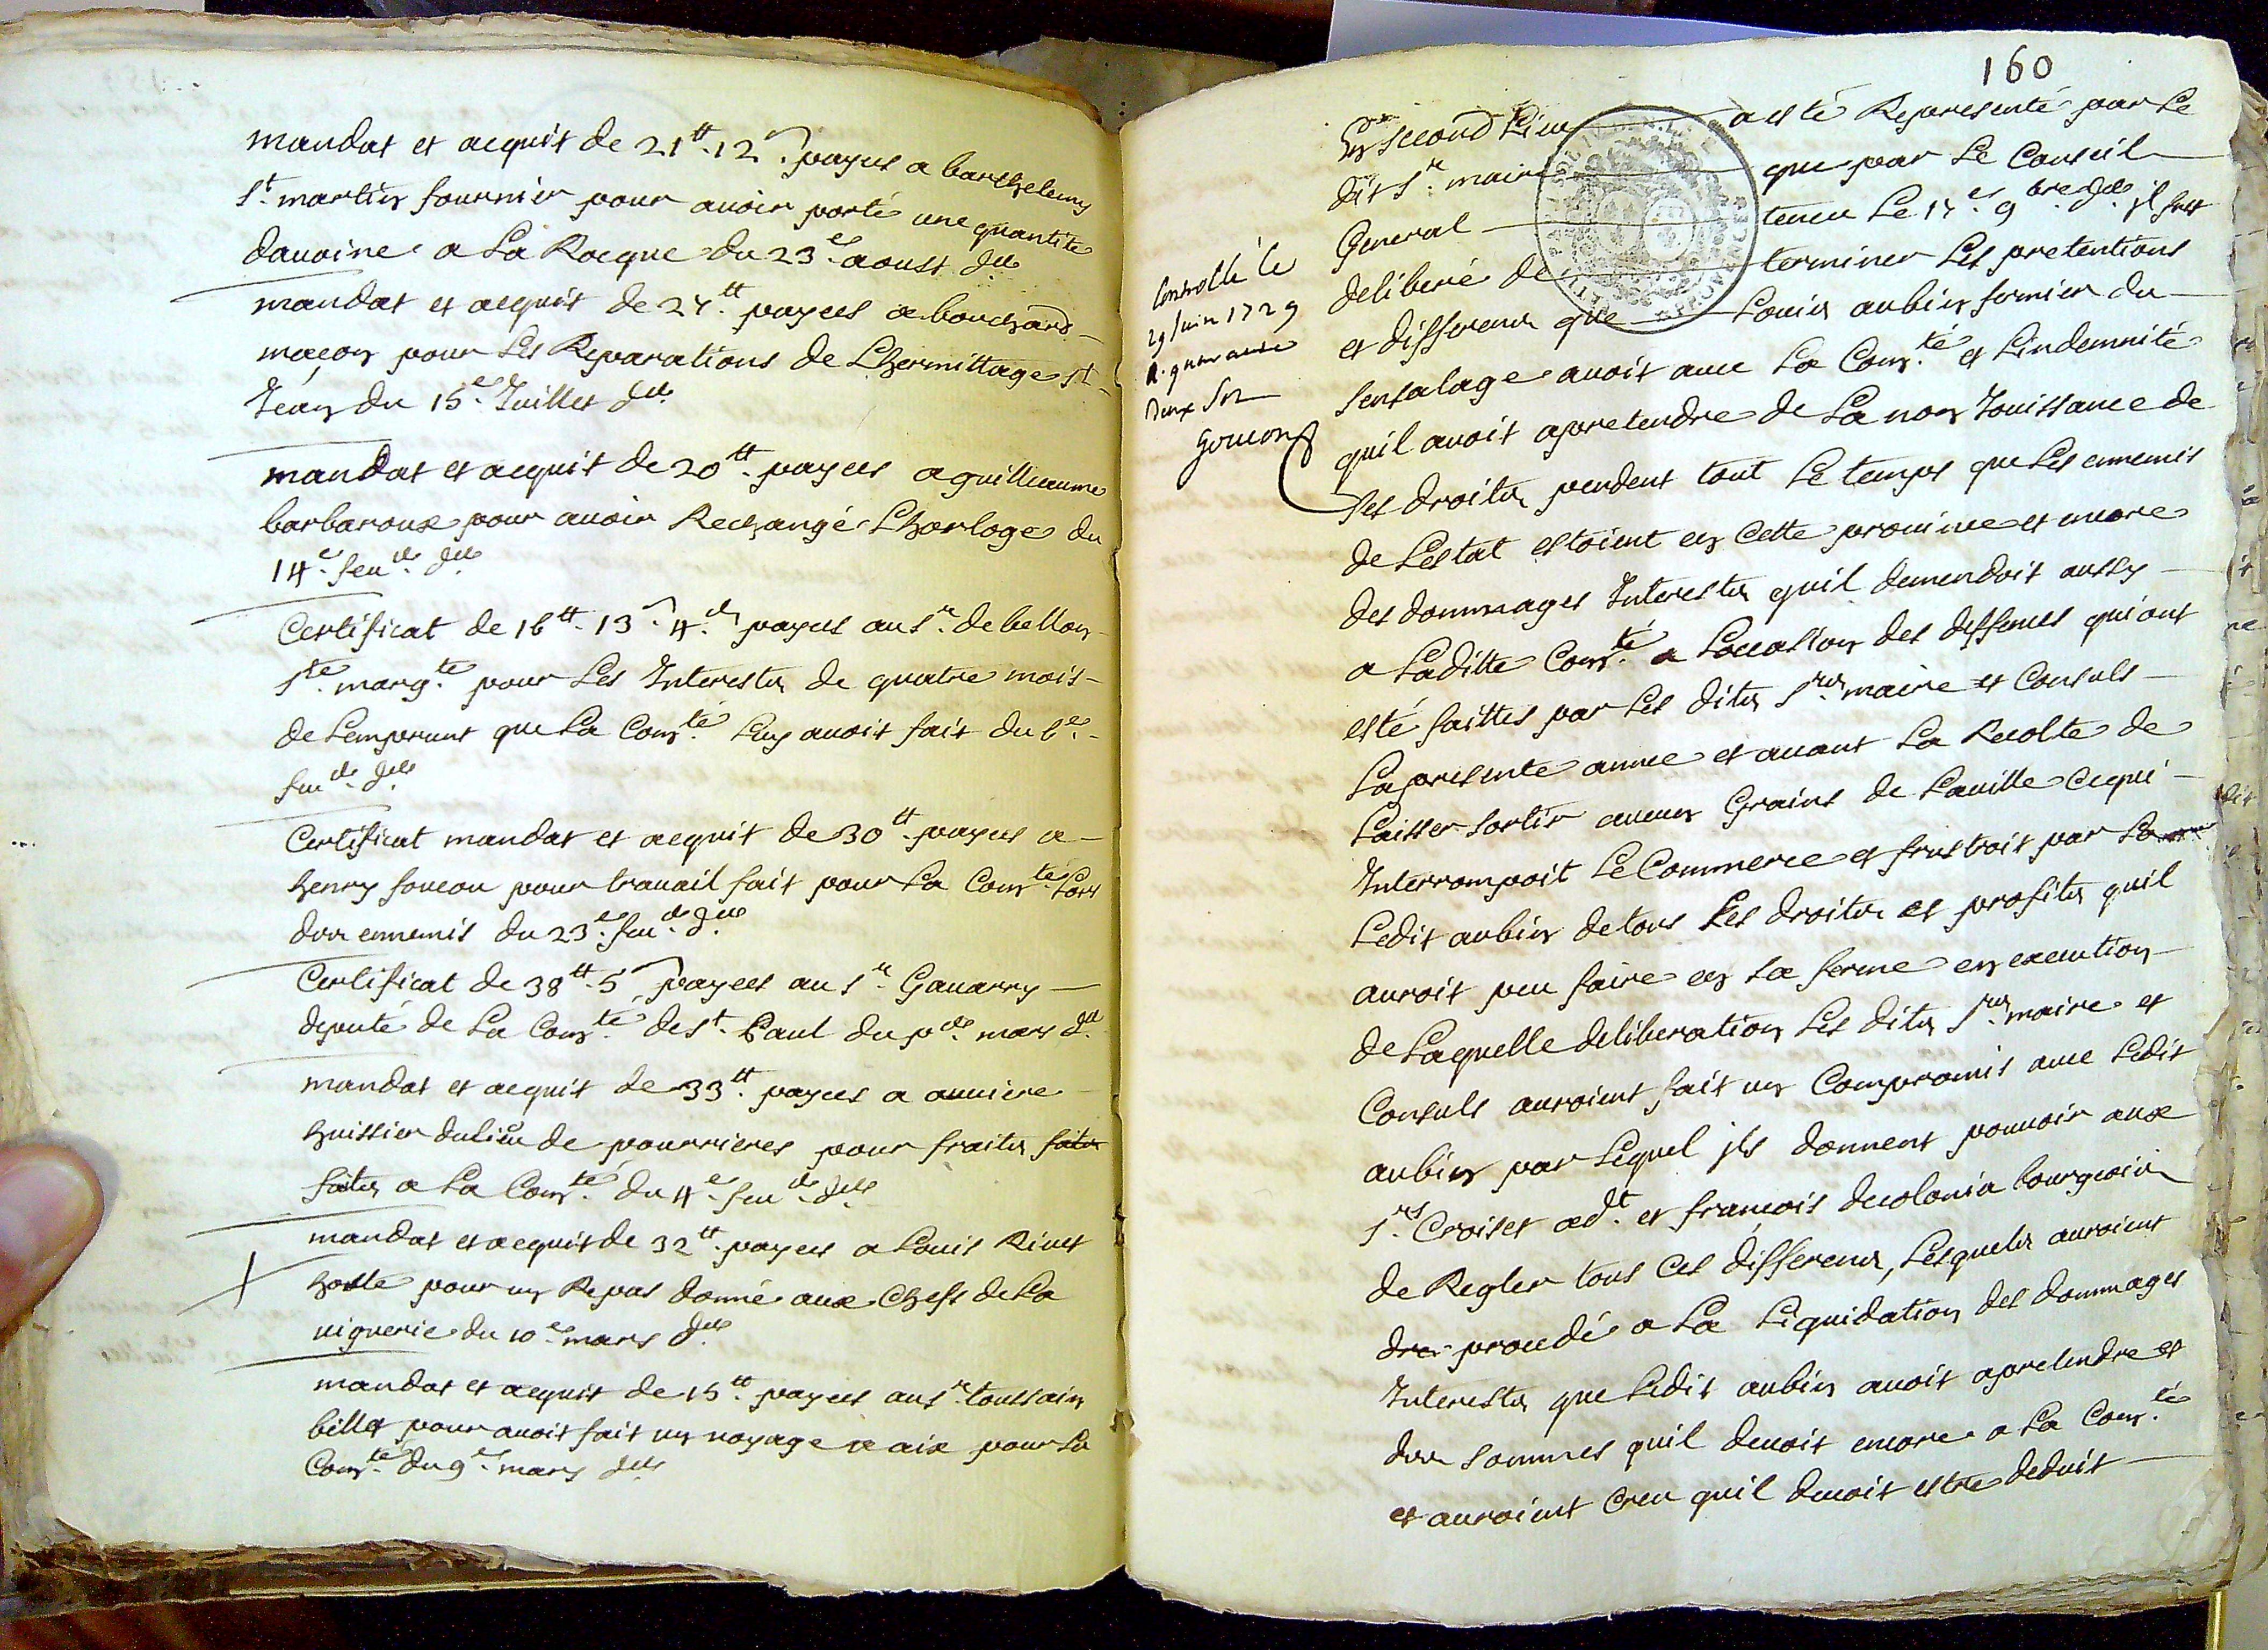 mandat et acquit de 21tt. 12s. payes a barthelemy
st. martin fournier pour avoir porté une quantité
davoine a La Rocque du 23e. aoust dit
mandat et acquit de 24tt. payees a bouchard
maçon pour Les Reparations de Lhermittage st
Jean du 15e. Juillet dit
mandat et acquit de 20tt. payees a guilleaume
barbaroux pour auoir Rechangé Lhorloge du
14e. feu dit
Certificat de 16tt. 13s. 4d. payes au sr. de bellon
ste. margte. pour Les Interests de quatre mois
de Lemprunt que La Comté. Luy auoit fait du 6e.
feu dit
Certificat mandat et acquit de 30tt. payes a
henry foucou pour trauail fait pour La Comté. Lors
des ennemis du 23e. feu dit
Certificat de 38tt. 5s payees au sr. Gauarry
deputé de La Comté. de st. Paul du pr. mars dit
mandat et acquit de 33tt. payees a
huissier du Lieu de pourrieres pour fraits faits
faits a La Comté. du 4e. feu dit
mandat et acquit de 32tt. payees a Louis Riues
hoste pour un Repas donné aux Chefs de La
viguerie du 10e mars dit
mandat et acquit de 15tt. payees au sr. toussain
billet pour auoit fait un voyage a aix pour La
Comté. du 9e. mars dit
160
Controllé le
29 Juin 1729
R. quarante
Deux s
En second Lieu a esté Representé par Le
dit sr. maire que par Le Conseil
General tenu Le 9bre. dit il fut
deliberé de terminer Les pretentions
et differens que Louis aubin fermier du
Sensalage auoit auec La Comté. et Lindemnité
quil auoit a pretendre de La non Jouissance de
ses droits pendent tout Le temps que Les ennemis
de Lestat estoient en Cette prouince et encore
des dommages Interests quil demendoit aussy
a Laditte Comté. a Locasion des deffences qui ont
esté faittes par Les dits srs. maire et Consuls
La presente annee et auant La Recolte de
Laisser sortir aucun Grains de La uille ce qui
Interrompoit Le Commerce et frustroit par La
Ledit aubin de tous Les droits et profits quil
auroit peu faire en La ferme en execution
de Laquelle deliberation Les dits srs. maire et
Consuls auroient fait un Compromis auec Ledit
aubin par Lequel ils donnent pouuoir aux
srs. Croiset adt. et francois decolonia bourgeois
de Regler tous Ces differens, Lesquels auroient
procedé a La Liquidation des dommages
Interests que Ledit aubin auoit a pretendre et
des sommes quil deuoit encore a La Comté.
et auroient Creu quil deuoit estre deduit